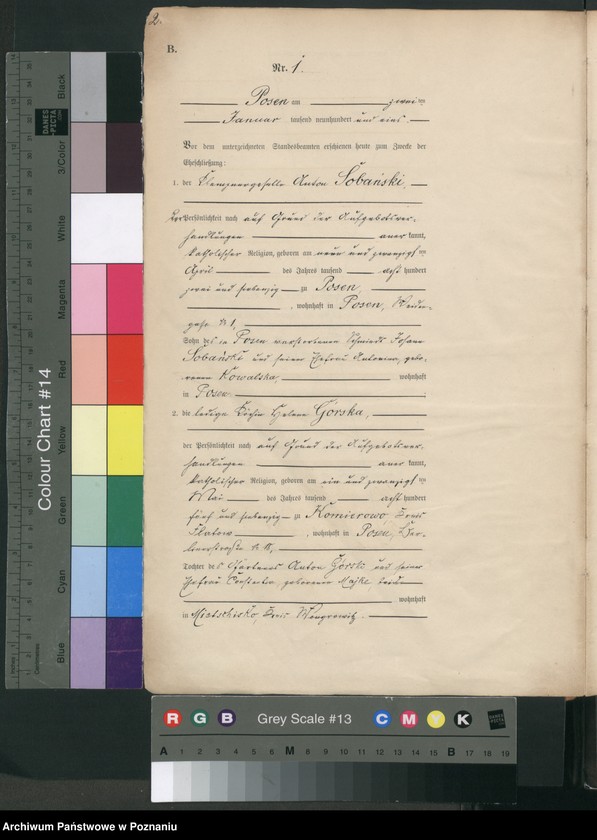 2.
B.
Nr. 1.
Posen am zwei ten
Januar tausend neunhundert und eins.
Vor dem unterzeichneten Standesbeamten erschienen heute zum Zwecke der
Eheschließung:
1. der Klempnergeselle Anton Sobański,
der Persönlichkeit nach auf Grund der Aufgebotsver-
handlungen aner kannt,
katholischer Religion, geboren am neun und zwanzigsten
April des Jahres tausend acht hundert
zwei und siebenzig zu Posen,
, wohnhaft in Posen, Weiden-
gasse № 1,
Sohn des in Posen verstorbenen Schmieds Johann
Sobański und seiner Ehefrau Antonina, gebo-
renen Kowalska, wohnhaft
in Posen.
2. die ledige Köchin Helene Górska,
der Persönlichkeit nach auf Grund der Aufgebotsver-
handlungen aner kannt,
katholischer Religion, geboren am ein und zwanzigsten
Mai des Jahres tausend acht hundert
fünf und siebenzig zu Komierowo, Kreis
Flatow, wohnhaft in Posen, Ber-
linerstraße № 18,
Tochter des Gärtners Anton Górski und seiner
Ehefrau Constantia, geborenen Majke, beide
wohnhaft
in Mietschisko, Kreis Wongrowitz.
Colour Chart #14
Black
3/Color
White
Magenta
Red
Yellow
Green
Cyan
Blue
DANES
PICTA
.COM
Inches
Centimetres
R G B Grey Scale #13 C M Y K
A 1 2 3 4 5 6 M 8 9 10 11 12 13 14 15 B 17 18 19
Archiwum Państwowe w Poznaniu